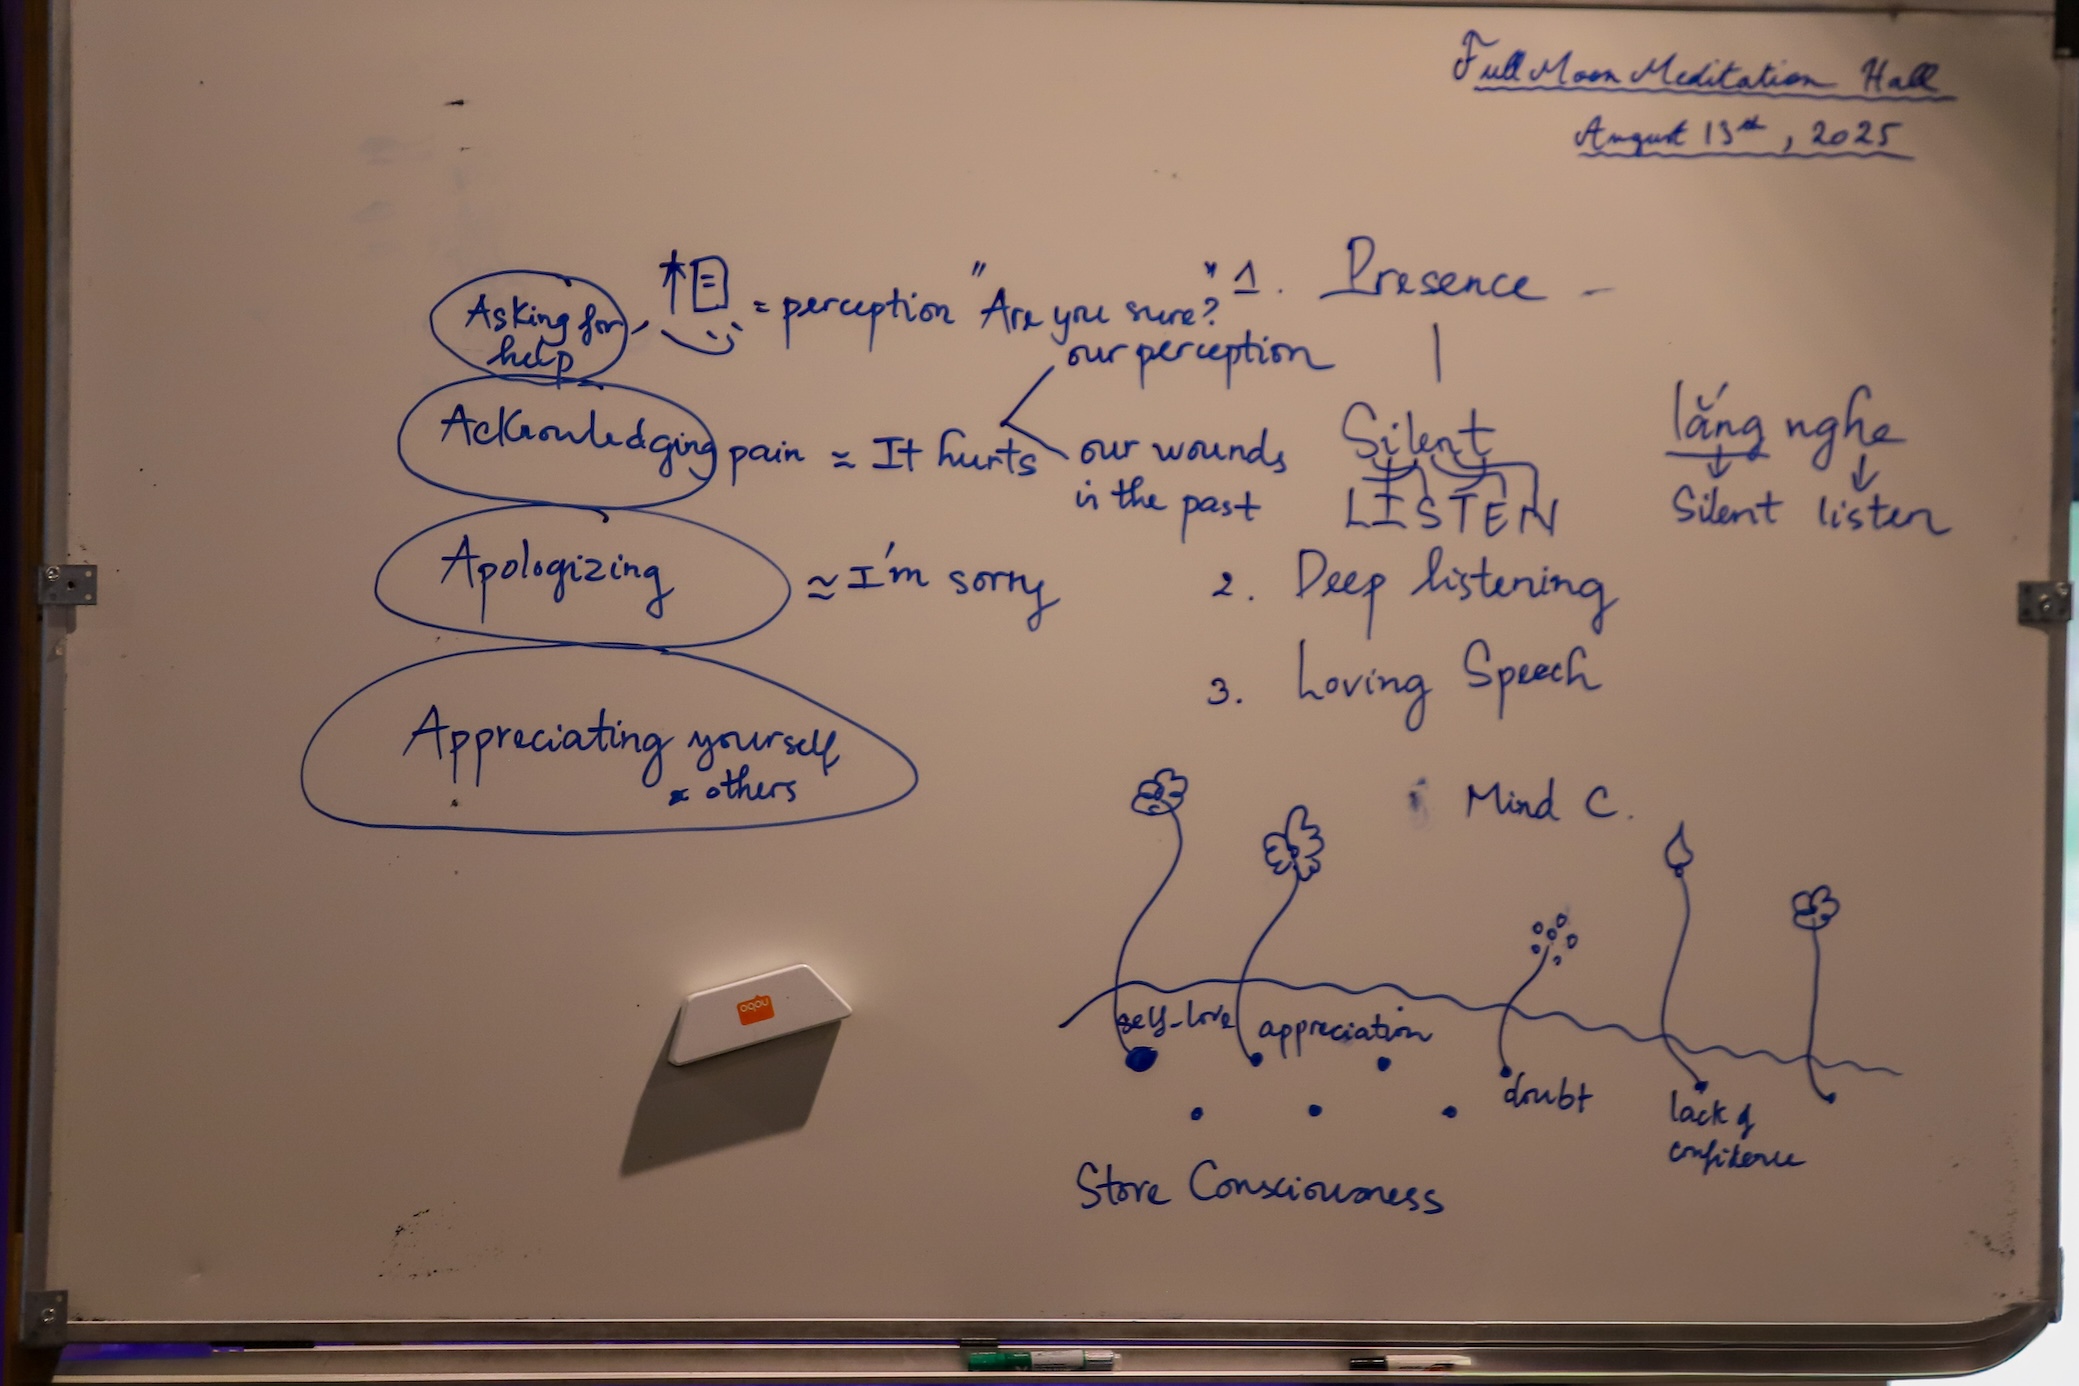 Full Moon Meditation Hall
August 13th, 2025
Asking for
help
想 = perception "Are you sure?"
Acknowledging pain ≈ It hurts
our perception
our wounds
in the past
Apologizing ≈ I'm sorry
Appreciating yourself
others
1. Presence -
Silent
LISTEN
lắng nghe
Silent listen
2. Deep listening
3. Loving Speech
Mind C.
self-love
appreciation
doubt
lack of
confidence
Store Consciousness